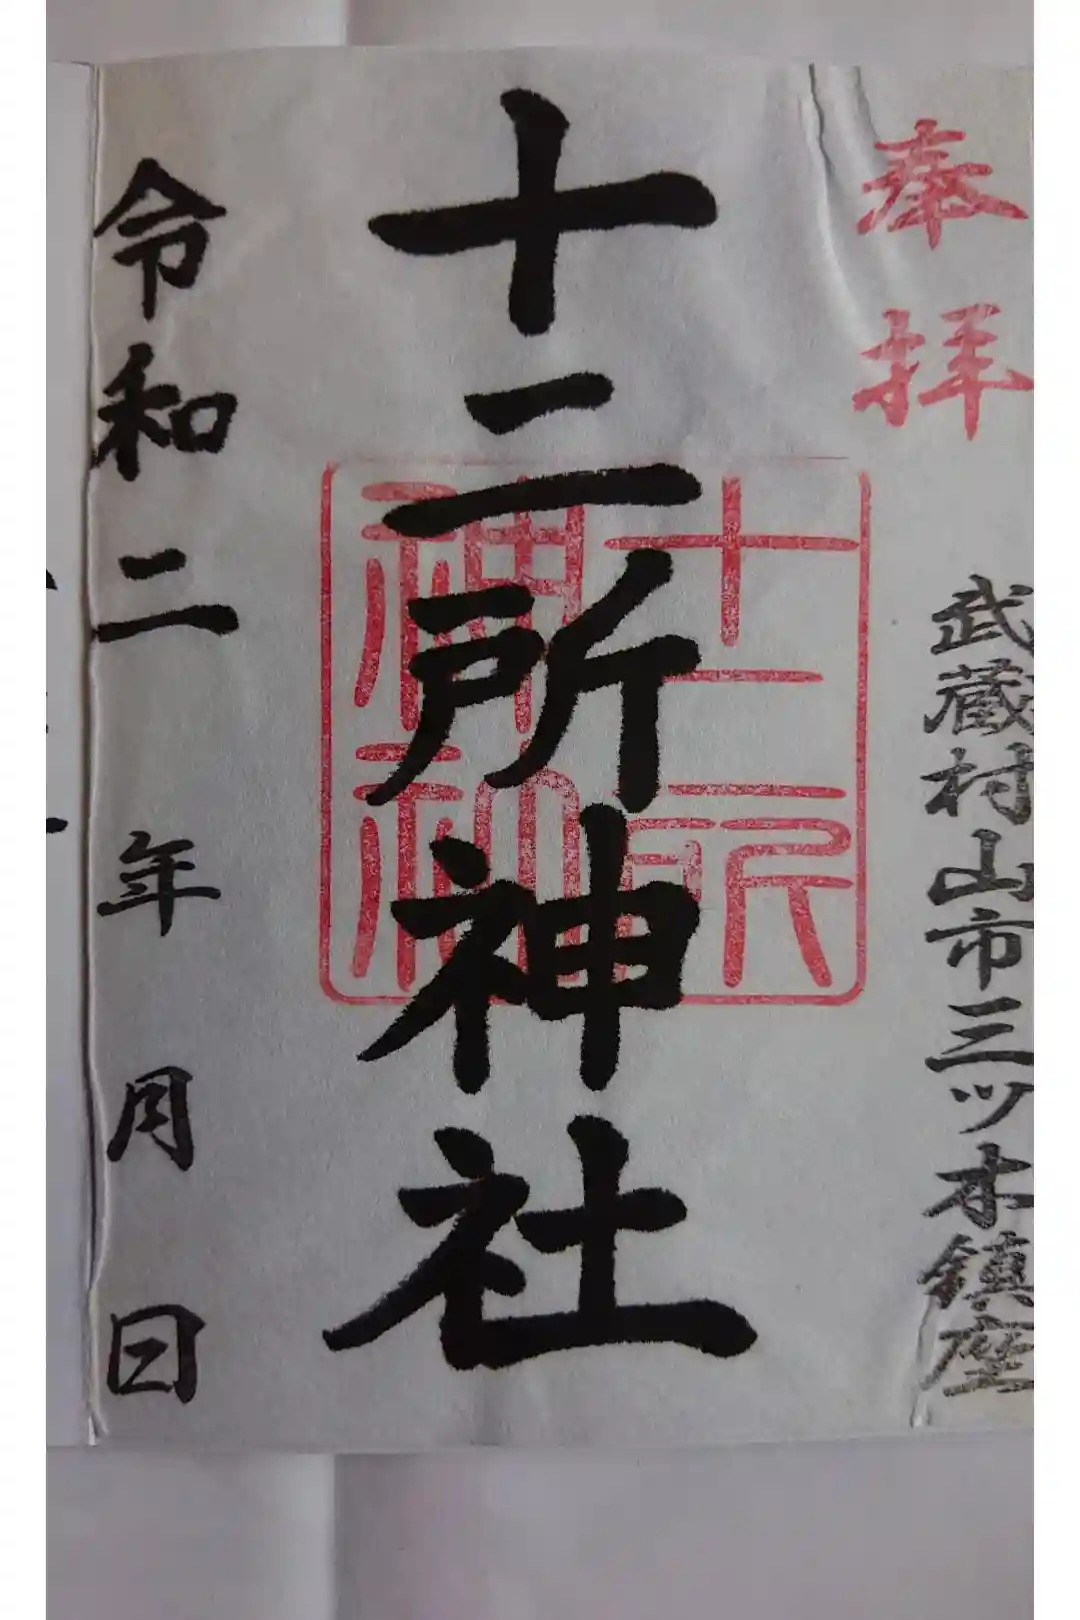 奉拝
武蔵村山市三ツ木鎮座
十二所神社
十二所
神社
令和二年月日